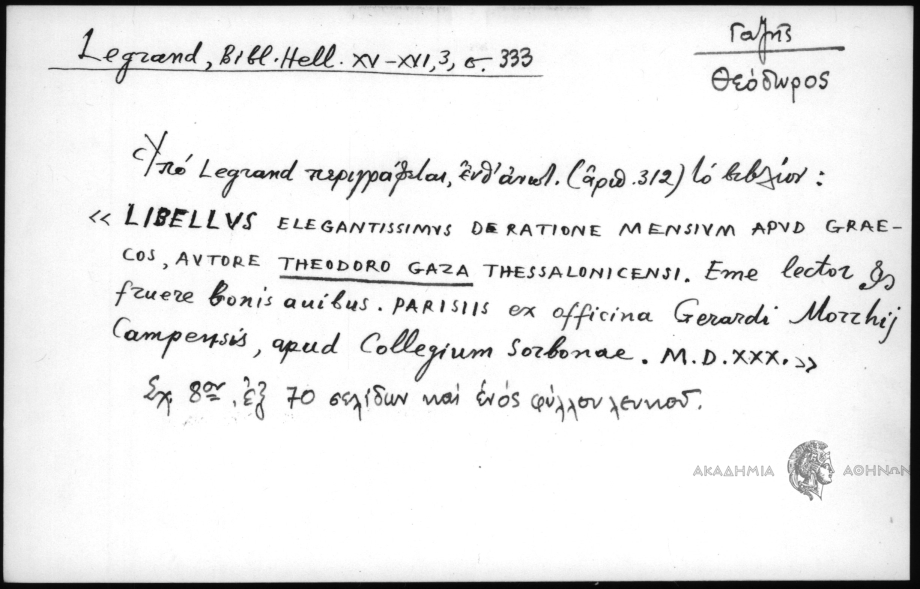 Legrand, Bibl. Hell. XV-XVI, 3, σ. 333
Γαζῆς
Θεόδωρος
Ὑπό Legrand περιγράφεται, ἔνθ' ἀνωτ. (ἀριθ. 312) τό βιβλίον :
« LIBELLVS ELEGANTISSIMVS DE RATIONE MENSIVM APVD GRAE-
COS, AVTORE THEODORO GAZA THESSALONICENSI. Eme lector &
fruere bonis auibus. PARISIIS ex officina Gerardi Morrhij
Campensis, apud Collegium Sorbonae. M.D.XXX. »
Σχ. 8ον, ἐξ 70 σελίδων καί ἑνός φύλλου λευκοῦ.
ΑΚΑΔΗΜΙΑ ΑΘΗΝΩΝ